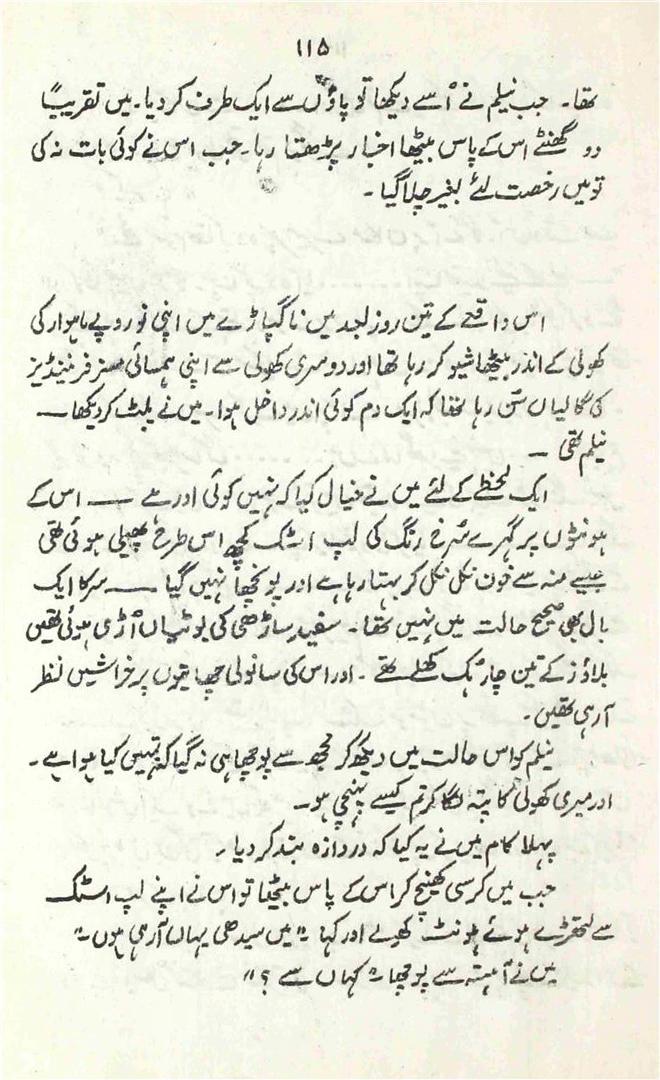 ۱۱۵
تھا۔ جب نیلم نے اُسے دیکھا تو پاؤں سے ایک طرف کر دیا۔ میں تقریباً
دو گھنٹے اس کے پاس بیٹھا اخبار پڑھتا رہا۔ جب اس نے کوئی بات نہ کی
تو میں رخصت لئے بغیر چلا گیا۔
اس واقعے کے تین روز بعد میں ناگپاڑے میں اپنی نو روپے ماہوار کی
کھولی کے اندر بیٹھا شیو کر رہا تھا اور دوسری کھولی سے اپنی ہمسائی مسز فرنینڈیز
کی گالیاں سُن رہا تھا کہ ایک دم کوئی اندر داخل ہوا۔ میں نے پلٹ کر دیکھا —
نیلم تھی —
ایک لحظے کے لئے میں نے خیال کیا کہ نہیں کوئی اور ہے — اس کے
ہونٹوں پر گہرے سُرخ رنگ کی لپ اسٹک کچھ اس طرح پھیلی ہوئی تھی
جیسے منہ سے خون نکل نکل کر بہتا رہا ہے اور پونچھا نہیں گیا — سر کا ایک
بال بھی صحیح حالت میں نہیں تھا۔ سفید ساڑھی کی بوٹیاں اُڑی ہوئی تھیں
بلاؤز کے تین چار ہُک کھلے تھے۔ اور اس کی سانولی چھاتیوں پر خراشیں نظر
آرہی تھیں۔
نیلم کو اس حالت میں دیکھ کر مجھ سے پوچھا ہی نہ گیا کہ تمہیں کیا ہوا ہے۔
اور میری کھولی کا پتہ لگا کر تم کیسے پہنچی ہو۔
پہلا کام میں نے یہ کیا کہ دروازہ بند کر دیا۔
جب میں کرسی کھینچ کر اس کے پاس بیٹھا تو اس نے اپنے لپ اسٹک
سے لتھڑے ہوئے ہونٹ کھولے اور کہا۔ "میں سیدھی یہاں آرہی ہوں۔"
میں نے آہستہ سے پوچھا۔ "کہاں سے؟"